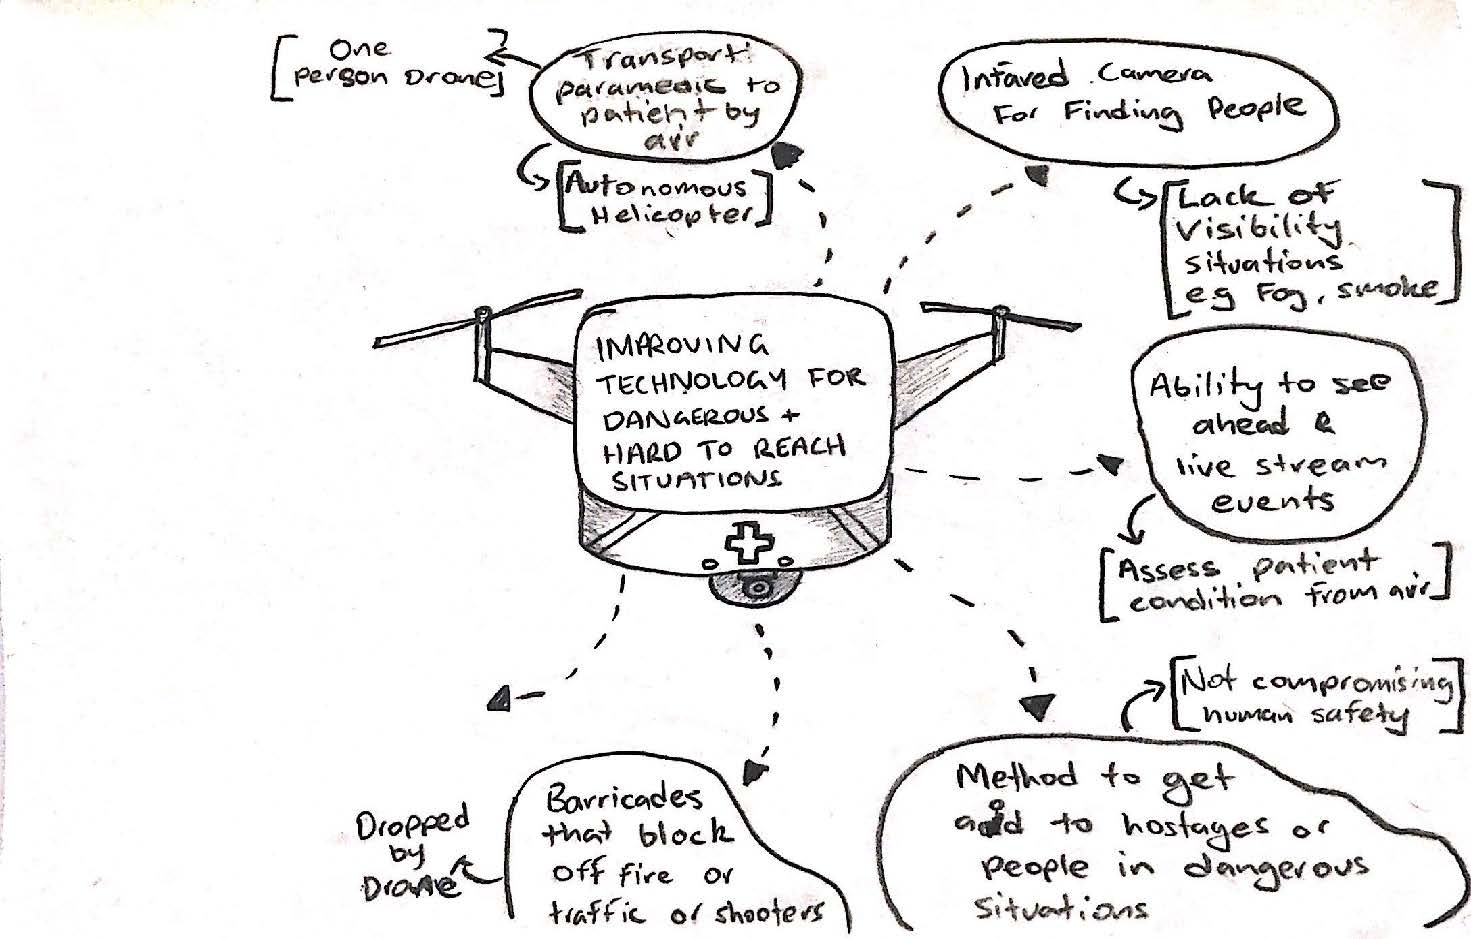 One
Person Drone
Transport
paramedic to
patient by
air
Autonomous
Helicopter
Infared Camera
For Finding People
Lack of
Visibility
situations
e.g Fog, smoke
IMPROVING
TECHNOLOGY FOR
DANGEROUS +
HARD TO REACH
SITUATIONS
Ability to see
ahead &
live stream
events
Assess patient
condition from air
Not compromising
human safety
Method to get
aid to hostages or
people in dangerous
situations
Barricades
that block
off fire or
traffic or shooters
Dropped
by
Drone